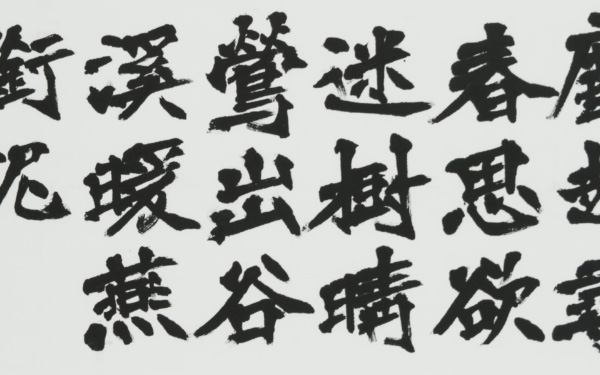 春思欲
迷樹晴
鶯出谷
溪暖燕
銜泥